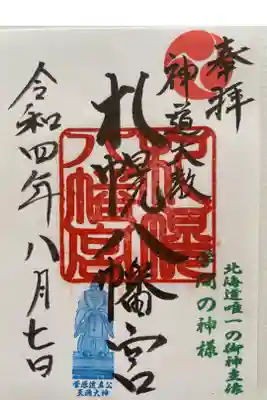 奉拝
神道大教
札幌八幡宮
札幌八幡宮
令和四年八月七日
北海道唯一の御神主像
学問の神様
菅原道真公
天満大神